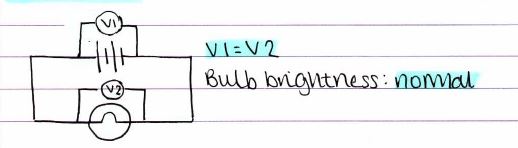 V1
V1=V2
V2
Bulb brightness: normal